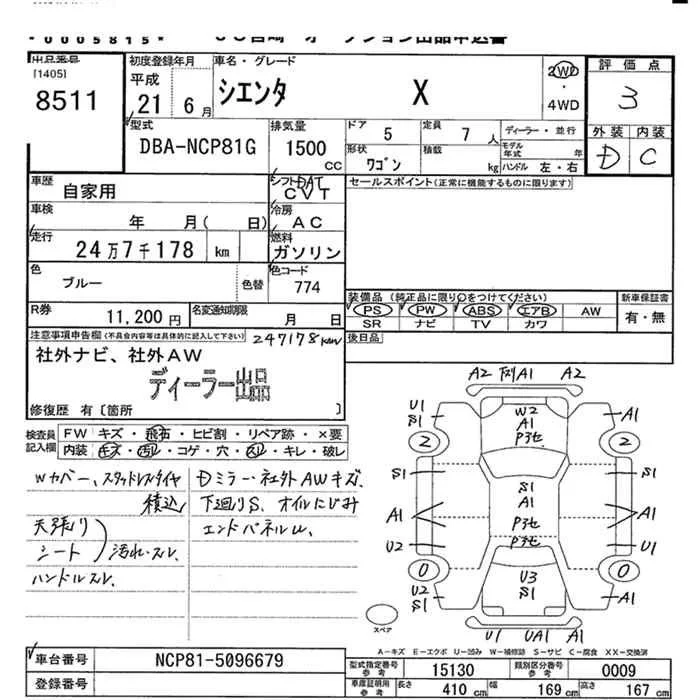 *0005815*
出品番号
[1405]
8511
初度登録年月
平成
21 6月
車名・グレード
シエンタ X
2WD
・
4WD
評価点
3
外装 内装
D C
型式
DBA-NCP81G
排気量
1500
CC
ドア 5
定員 7 人
形状 ワゴン
積載 kg
ディーラー・並行
モデル年式 年
ハンドル 左・右
車歴
自家用
シフト DAT
CVT
セールスポイント(正常に機能するものに限ります)
車検
年 月( 日)
冷房
AC
走行
24万7千178 km
燃料
ガソリン
色
ブルー
色替
色コード
774
R券
11,200円
名変通知期限
月 日
装備品 (純正品に限り○をつけてください)
PS PW ABS エアB AW
SR ナビ TV カワ
新車保証書
有・無
後日品
注意事項申告欄(不具合内容等は具体的に記入して下さい)
247178km
社外ナビ、社外AW
ディーラー出品
修復歴 有〔箇所 〕
検査員
記入欄
FW キズ・飛石・ヒビ割・リペア跡・×要
内装 キズ・汚レ・コゲ・穴・スレ・キレ・破レ
Wカバー、スタッドレスタイヤ
積込
天張り
シート
汚れ・スレ
ハンドルスレ
Dミラー・社外AWキズ
下廻りS、オイルにじみ
エンドパネルU
A2 下列A1 A2
U1
S1
W2
A1
P3セ
A1
2
2
S1
S1
S1
A1
A1
A1
P3セ
U2
P3セ
U1
0
0
U2
S1
U3
S1
A1
U1 UA1 A1
スペア
A-キズ E-エクボ U-凹み W-補修跡 S-サビ C-腐食 XX-交換済
車台番号
NCP81-5096679
登録番号
型式指定番号
参考
15130
類別区分番号
参考
0009
車庫証明用
参考
長さ 410 cm
幅 169 cm
高さ 167 cm